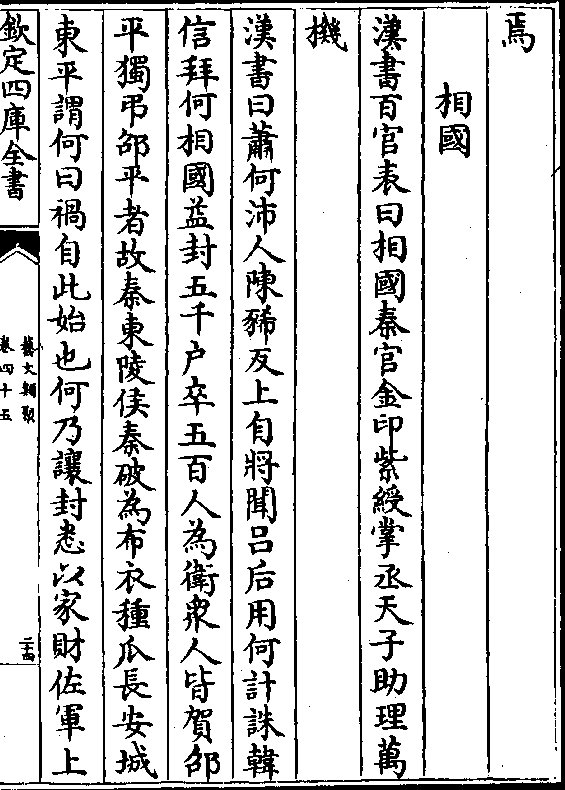 焉
相國
漢書百官表曰相國秦官金印紫綬掌丞天子助理萬
機
漢書曰蕭何沛人陳豨反上自將聞吕后用何計誅韓
信拜何相國益封五千户卒五百人為衛衆人皆賀邵
平獨弔邵平者故秦東陵侯秦破為布衣種瓜長安城
東平謂何曰禍自此始也何乃讓封悉以家財佐軍上
欽定四庫全書
藝文類聚
卷四十五
二十四